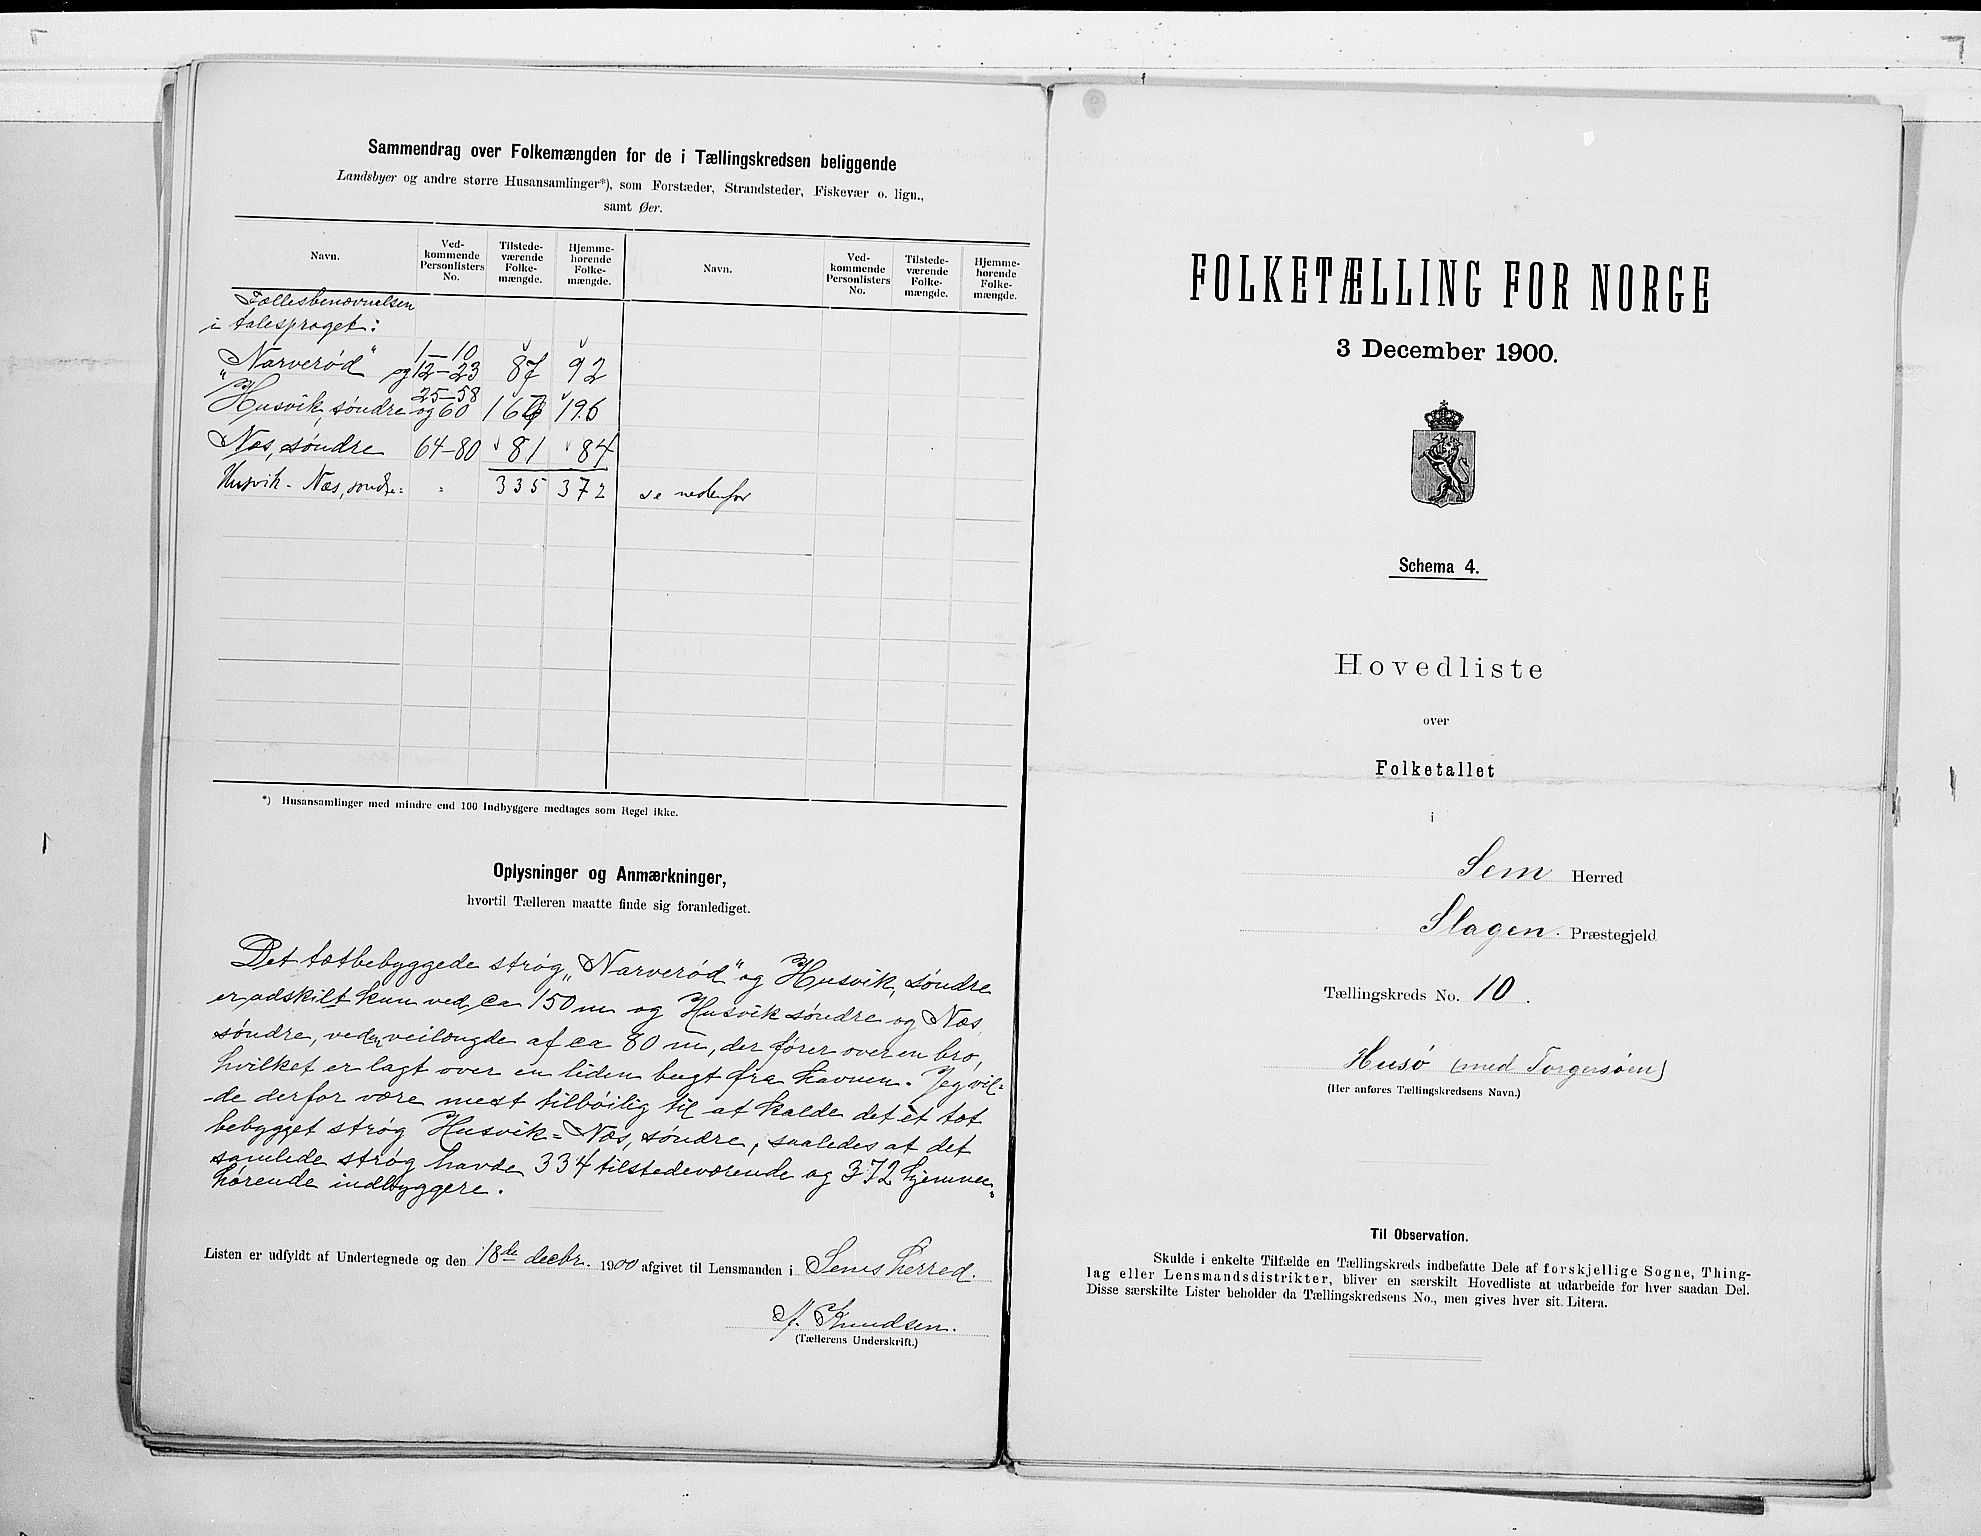 Sammendrag over Folkemængden for de i Tællingskredsen beliggende
Landsbyer og andre større Husansamlinger*), som Forstæder, Strandsteder, Fiskevær o. lign.,
samt Øer.
Navn. Ved-kommende Personlisters No. Tilstede-værende Folke-mængde. Hjemme-hørende Folke-mængde. Navn. Ved-kommende Personlisters No. Tilstede-værende Folke-mængde. Hjemme-hørende Folke-mængde.
Fællesbenævnelsen
i talesproget:
"Narverød" 1–10 og 12–23 87 92
Husvik, søndre 25–58 og 60 167 196
Næs, søndre 64–80 81 84
Husvik - Næs, søndre = " 335 372 se nedenfor
*) Husansamlinger med mindre end 100 Indbyggere medtages som Regel ikke.
Oplysninger og Anmærkninger,
hvortil Tælleren maatte finde sig foranlediget.
Det tætbebyggede strøg „Narverød" og Husvik, søndre
er adskilt kun ved ca 150 m og Husvik søndre og Næs
søndre, ved en veilængde af ca 80 m, der fører over en bro,
hvilket er lagt over en liden bugt fra havnen. Jeg vil-
de derfor være mest tilbøilig til at kalde det ét tæt
bebygget strøg Husvik=Næs, søndre, saaledes at det
samlede strøg havde 334 tilstedeværende og 372 hjemme=
hørende indbyggere.
Listen er udfyldt af Undertegnede og den 18de decbr. 1900 afgivet til Lensmanden i Sems herred.
A. Knudsen.
(Tællerens Underskrift.)
FOLKETÆLLING FOR NORGE
3 December 1900.
Schema 4.
Hovedliste
over
Folketallet
i
Sem Herred
Slagen. Præstegjeld
Tællingskreds No. 10.
Husø (med Torgersøen)
(Her anføres Tællingskredsens Navn.)
Til Observation.
Skulde i enkelte Tilfælde en Tællingskreds indbefatte Dele af forskjellige Sogne, Thing-
lag eller Lensmandsdistrikter, bliver en særskilt Hovedliste at udarbeide for hver saadan Del.
Disse særskilte Lister beholder da Tællingskredsens No., men gives hver sit Litera.